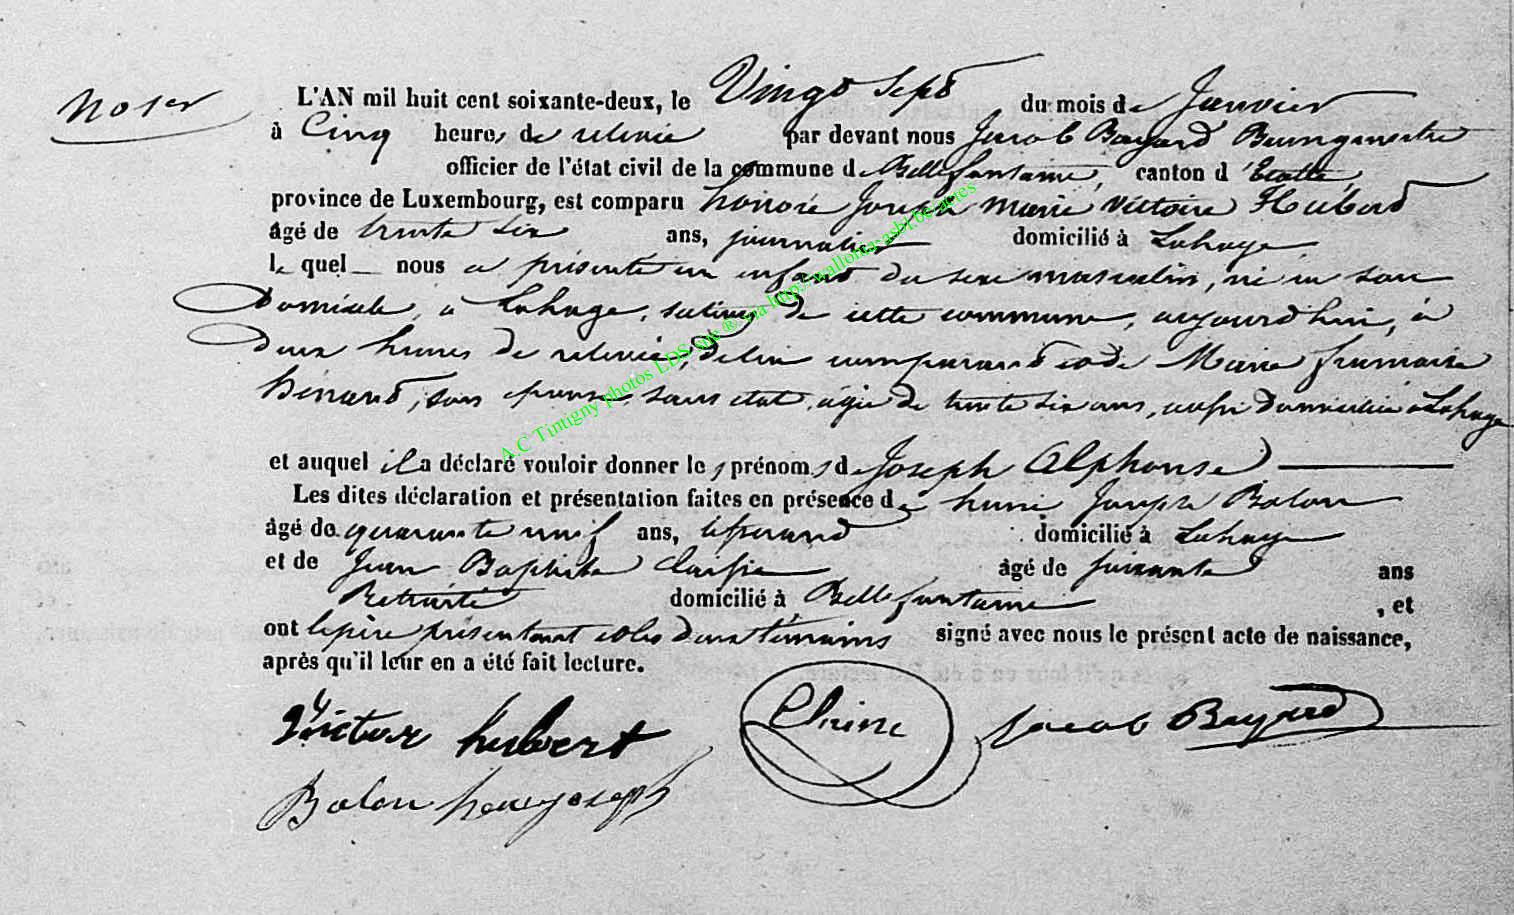 noter
L'AN mil huit cent soixante-deux, le Vingt Sept du mois de Janvier
à Cinq heures de relevée par devant nous Jacob Bayard Bourgmestre
officier de l'état civil de la commune de Bellefontaine, canton d'Etalle,
province de Luxembourg, est comparu honoré Joseph Marie Victoire Hubert
âgé de trente six ans, journalier domicilié à Lahage
le quel nous a présenté un enfant du sexe masculin, né en son
Domicile, à Lahage, section de cette commune, aujourd'hui, à
Deux heures de relevée, de lui comparant et de Marie françoise
hénard, son épouse, sans état, agée de trente six ans, aussi domiciliée à Lahage
et auquel il a déclaré vouloir donner les prénoms de Joseph Alphonse
Les dites déclaration et présentation faites en présence de henri Joseph Bolon
âgé de quarante neuf ans, tisserand domicilié à Lahage
et de Jean Baptiste âgé de soixante ans
Retraité domicilié à Bellefontaine , et
ont le père présentant et les deux témoins signé avec nous le présent acte de naissance,
après qu'il leur en a été fait lecture.
Victor hubert Jacob Bayard
Bolon henry joseph
A.C Tintigny photos LDS via http://wallonia-asbl.be/actes